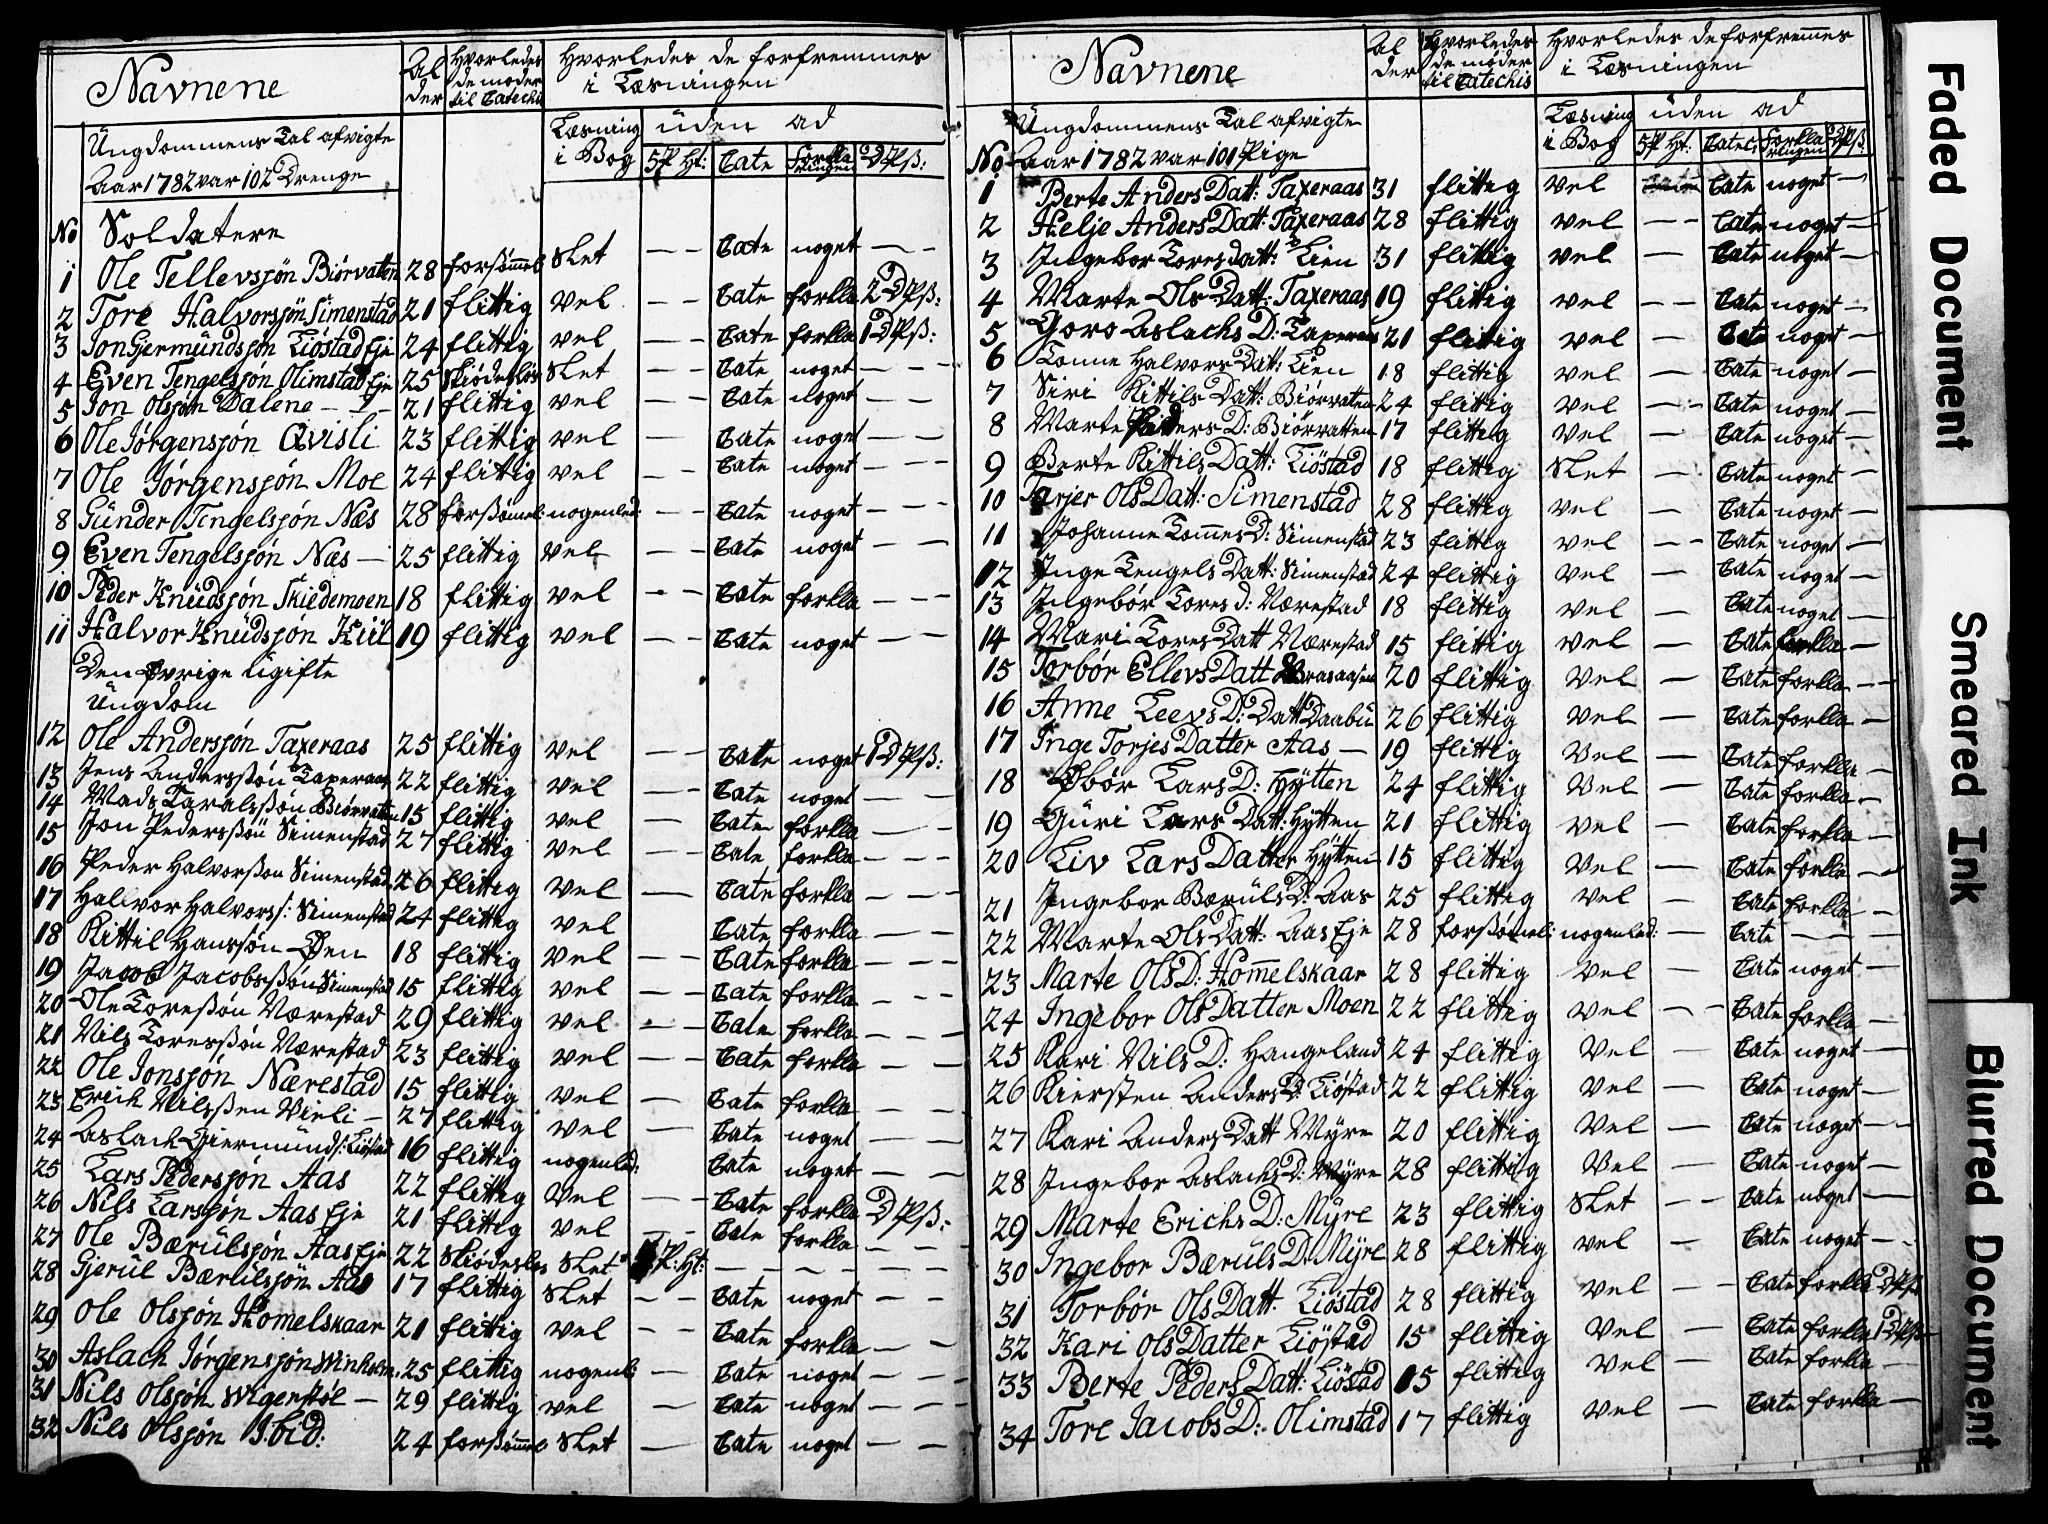 Navnene
Al
der
Hvorledes
de møder
til Catechis
Hvorledes de forfremmes
i Læsningen
Ungdommens Tal afvigte
Aar 1782 var 102 Drenge
Læsning
i Bog
uden ad
5 P Ht:
Cate
Forkla
ringen
D Psß:
No Soldatere
1 Ole Tellevsjøn Biørvaten 28 forsømmel Slet — — Cate noget — —
2 Tore Halvorsjøn Simenstad 21 flittig vel — — Cate forkla 2 D Psß:
3 Jon Gjermundsjøn Liøstad Eje 24 flittig vel — — Cate forkla 1 D Psß:
4 Even Tengelsjøn Olimstad Eje 25 Skiødesløs Slet — — Cate noget — — —
5 Jon Olsjøn Dalene 21 flittig vel — — Cate noget — —
6 Ole Jørgensjøn Qvisli 23 flittig vel — — Cate noget — — —
7 Ole Jørgensjøn Moe 24 flittig vel — Cate noget — — —
8 Gunder Tengelsjøn Næs 28 forsømel nogenled: — — Cate noget — — —
9 Even Tengelsjøn Næs — 25 flittig vel — — Cate noget — —
10 Peder Knudsjøn Skiedemoen 18 flittig vel — — Cate forkla — — —
11 Halvor Knudsjøn Kiil 19 flittig vel — — Cate noget — —
Den øvrige Ugifte
Ungdom
12 Ole Andersjøn Taxeraas 25 flittig vel — — Cate noget 1 D Psß:
13 Jens Andersøn Taxeraas 22 flittig vel — — Cate noget — —
14 Mads Taralssøn Biørvaten 15 flittig vel — Cate forkla — —
15 Jon Pedersøn Simenstad 27 flittig vel — — Cate forkla — — —
16 Peder Halvorsøn Simenstad 26 flittig vel — — Cate forkla — — —
17 Halvor Halvors: Simenstad 24 flittig vel Cate forkla — — —
18 Kittil Hanssøn Øen 18 flittig vel — — Cate forkla — — —
19 Jacob Jacobssøn Simenstad 15 flittig vel — — Cate forkla — — —
20 Ole Toresøn Nærestad 29 flittig vel — — Cate forkla — — —
21 Nils Toressøn Nærestad 23 flittig vel — — Cate forkla — — —
22 Ole Jonsjøn Nærestad 15 flittig vel — — Cate forkla — — —
23 Erich Nilssen Vieli — 27 flittig vel — — Cate noget — — —
24 Aslach Giermunds: Liøstad 16 flittig nogenled: Cate noget — — —
25 Lars Pedersjøn Aas 22 flittig vel — — Cate forkla D Psß:
26 Nils Larsjøn Aas Eje 21 flittig vel — — Cate forkla — — —
27 Ole Bærulsjøn Aas Eje 22 Skiødesløs Slet P: Ht: — — — — — —
28 Gjerul Bærulsjøn Aas 17 flittig Slet — — Cate noget — —
29 Ole Olsjøn Homelskaar 21 flittig vel — — Cate forkla — —
30 Aslach Jørgensjøn Winholm. 25 flittig nogenl: — Cate noget — —
31 Nils Olsjøn Wigenstøl — 29 flittig vel — Cate noget — —
32 Nils Olsjøn Ibid: 24 forsømmel Slet — Cate noget — —
Navnene
Al
der
Hvorledes
de møder
til Catechis
Hvorledes de forfremmes
i Læsningen
Ungdommens Tal afvigte
No Aar 1782 var 101 Pige
Læsning
i Bog
uden ad
5 P Ht:
Catec:
Forkla
ringen
D Psß
1 Berte Anders Datt: Taxeraas 31 flittig vel Cate noget —
2 Helje Anders Datt: Taxeraas 28 flittig vel — — Cate noget —
3 Ingebor Tores datt: Lien 31 flittig vel — Cate noget —
4 Marte Ols Datt: Taxeraas 19 flittig vel — — Cate noget —
5 Goro Aslachs D: Taxeraas 21 flittig vel — Cate noget —
6 Tonne Halvors Datt: Lien 18 flittig vel — Cate noget —
7 Siri Kittils Datt: Biørvatten 24 flittig vel — — Cate noget —
8 Marte Peders D: Biørvatten 17 flittig vel — Cate noget —
9 Berte Kittils Datt: Liøstad 18 flittig Slet — Cate noget —
10 Tarjer Ols Datt: Simenstad 28 flittig vel — Cate noget —
11 Johanne Tomes D: Simenstad 23 flittig vel — — Cate noget —
12 Inge Tengels Datt: Simenstad 24 flittig vel — Cate noget —
13 Ingebør Tores d: Nærestad 18 flittig vel — Cate noget —
14 Mari Tores Datt Nærestad 15 flittig vel — Cate forkla —
15 Torbør Ellevs Datt 20 flittig vel — Cate forkla — —
16 Anne Leevs D: Datt Daabu 26 flittig vel — Cate forkla —
17 Inge Torjes Datter Aas — 19 flittig vel — Cate forkla —
18 Obør Lars D: Hytten 24 flittig Vel — Cate forkla —
19 Guri Lars Datt: Hytten 21 flittig vel — Cate forkla —
20 Liv Lars Datter Hytten 15 flittig vel — Cate forkla —
21 Ingebor Bæruls D: Aas 25 flittig vel — Cate forkla —
22 Marte Ols Datt: Aas Eje 28 forsømel: nogenled: — Cate — —
23 Marte Ols D: Homelskaar 28 flittig vel — Cate noget —
24 Ingebor Ols Datter Moen 22 flittig vel — — Cate forkla —
25 Kari Nils D: Hangeland 24 flittig Vel — Cate noget —
26 Kiersten Anders D: Liøstad 22 flittig vel — Cate noget —
27 Kari Anders Datt Myre 20 flittig Vel — Cate noget — —
28 Ingebor Aslachs D: Myre 28 flittig Vel — Cate noget —
29 Marte Erichs D: Myre 23 flittig Slet — — Cate noget —
30 Ingebor Bæruls D: Myre 28 flittig vel — Cate noget — —
31 Torbør Ols Datt. Liøstad 28 flittig vel — — Cate forkla D Psß
32 Kari Ols Datter Liøstad 15 flittig Vel — Cate forkla 1 D Psß
33 Berte Peders Datt: Liøstad 15 flittig vel — Cate forkla —
34 Tore Jacobs D: Olimstad 17 flittig vel — Cate forkla —
Faded Document
Smeared Ink
Blurred Document